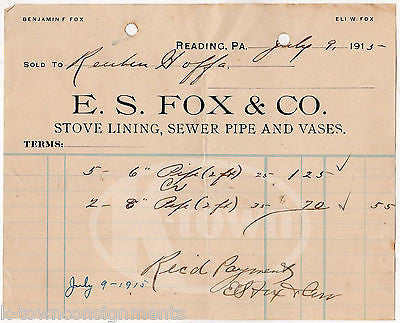 BENJAMIN F FOX ELI W. FOX
READING, PA. July 9, 1915
SOLD TO Reuben Hoffa
E. S. FOX & CO.
STOVE LINING, SEWER PIPE AND VASES.
TERMS:
5 - 6" Pipe (2 ft) 25 1 25 ✓
Cr
2 - 8" Pipe (2 ft) 35 70 ✓ 55
Rec'd Payment
July 9-1915 E S Fox & Co
k-townconsignments